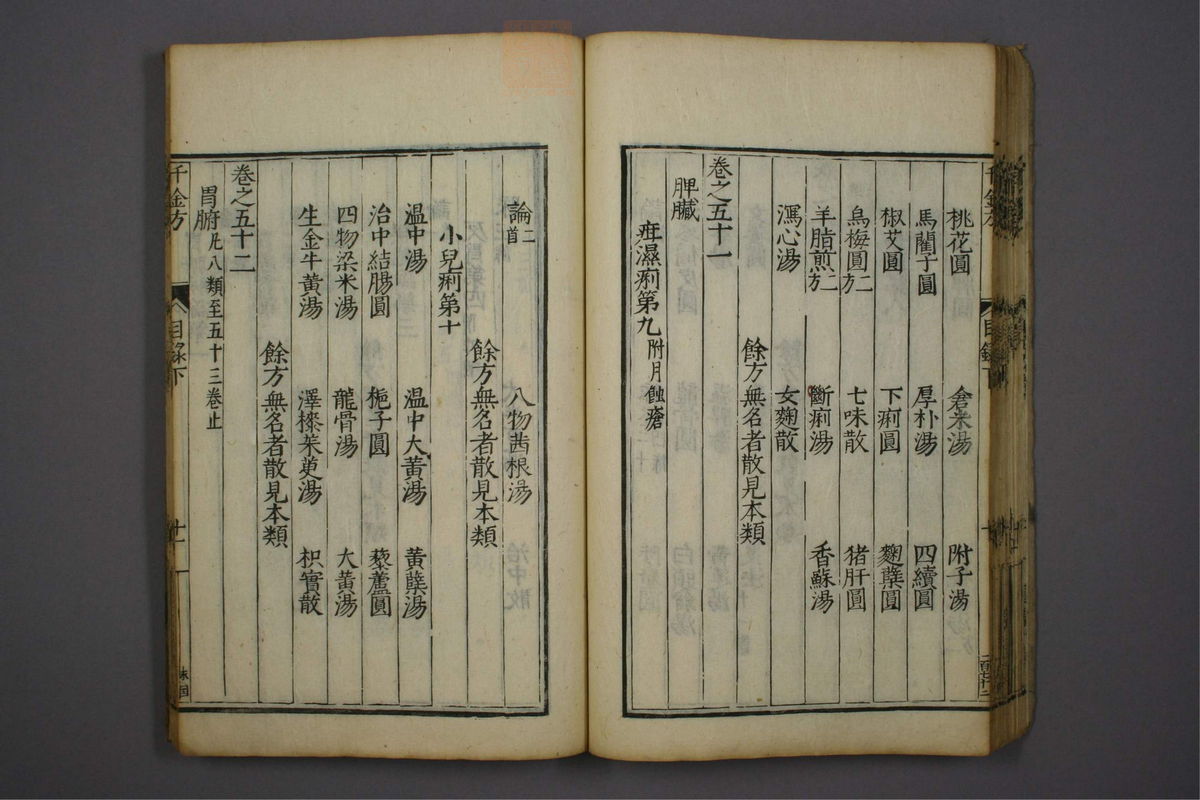 千金方
目錄下
桃花圓 倉米湯 附子湯
馬藺子圓 厚朴湯 四續圓
椒艾圓 下痢圓 麴糵圓
烏梅圓二方 七味散 猪肝圓
羊脂煎二方 斷痢湯 香蘇湯
瀉心湯 女麴散
餘方無名者散見本類
卷之五十一
脾臟
疳濕痢第九 附月蝕瘡
論二首 八物茜根湯
餘方無名者散見本類
小兒痢第十
溫中湯 溫中大黃湯 黃蘗湯
治中結腸圓 梔子圓 藜蘆圓
四物粱米湯 龍骨湯 大黃湯
生金牛黃湯 澤漆茱萸湯 枳實散
餘方無名者散見本類
卷之五十二
胃腑 凡八類至五十三卷止
千金方
目錄下
十一